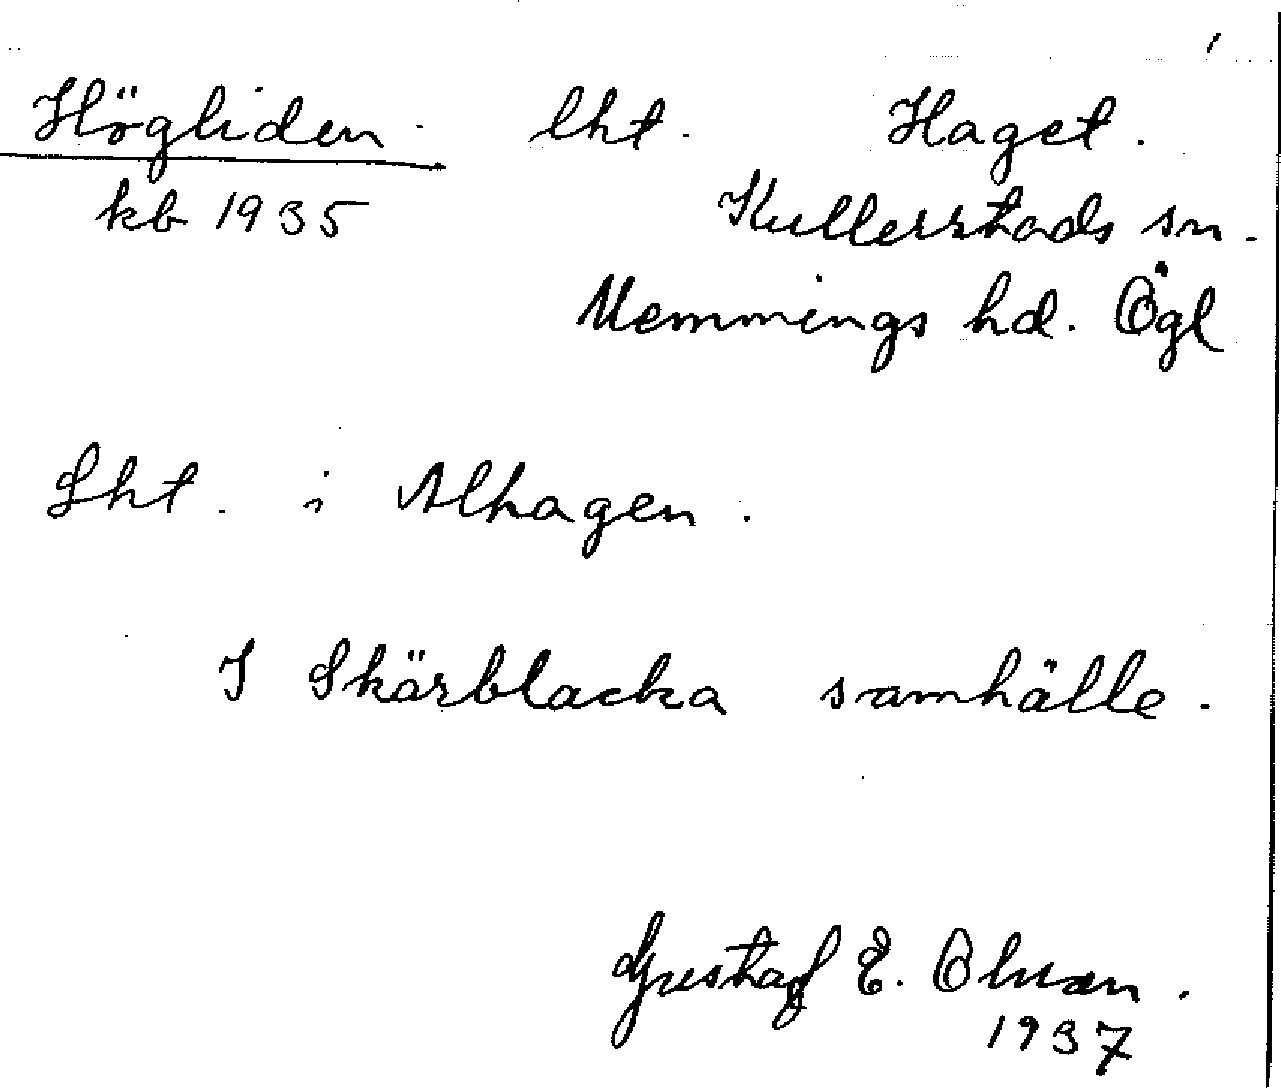 Högliden. lht. Haget.
kb 1935 Kullerstads sn.
Memmings hd. Ögl
Lht. i Alhagen.
I Skärblacka samhälle.
Gustaf E. Olsson.
1937